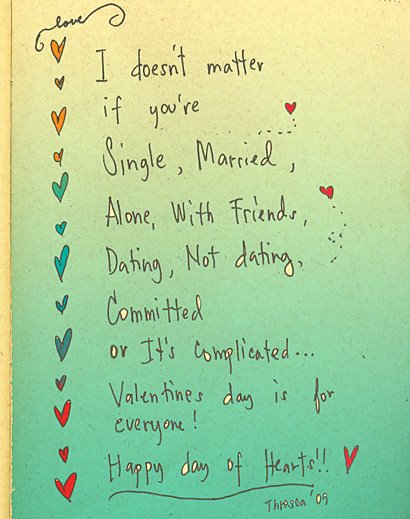 love
I doesn't matter
if you're
Single, Married,
Alone, With Friends,
Dating, Not dating,
Committed
or It's Complicated...
Valentines day is for
everyone!
Happy day of Hearts!!
Thresca '09